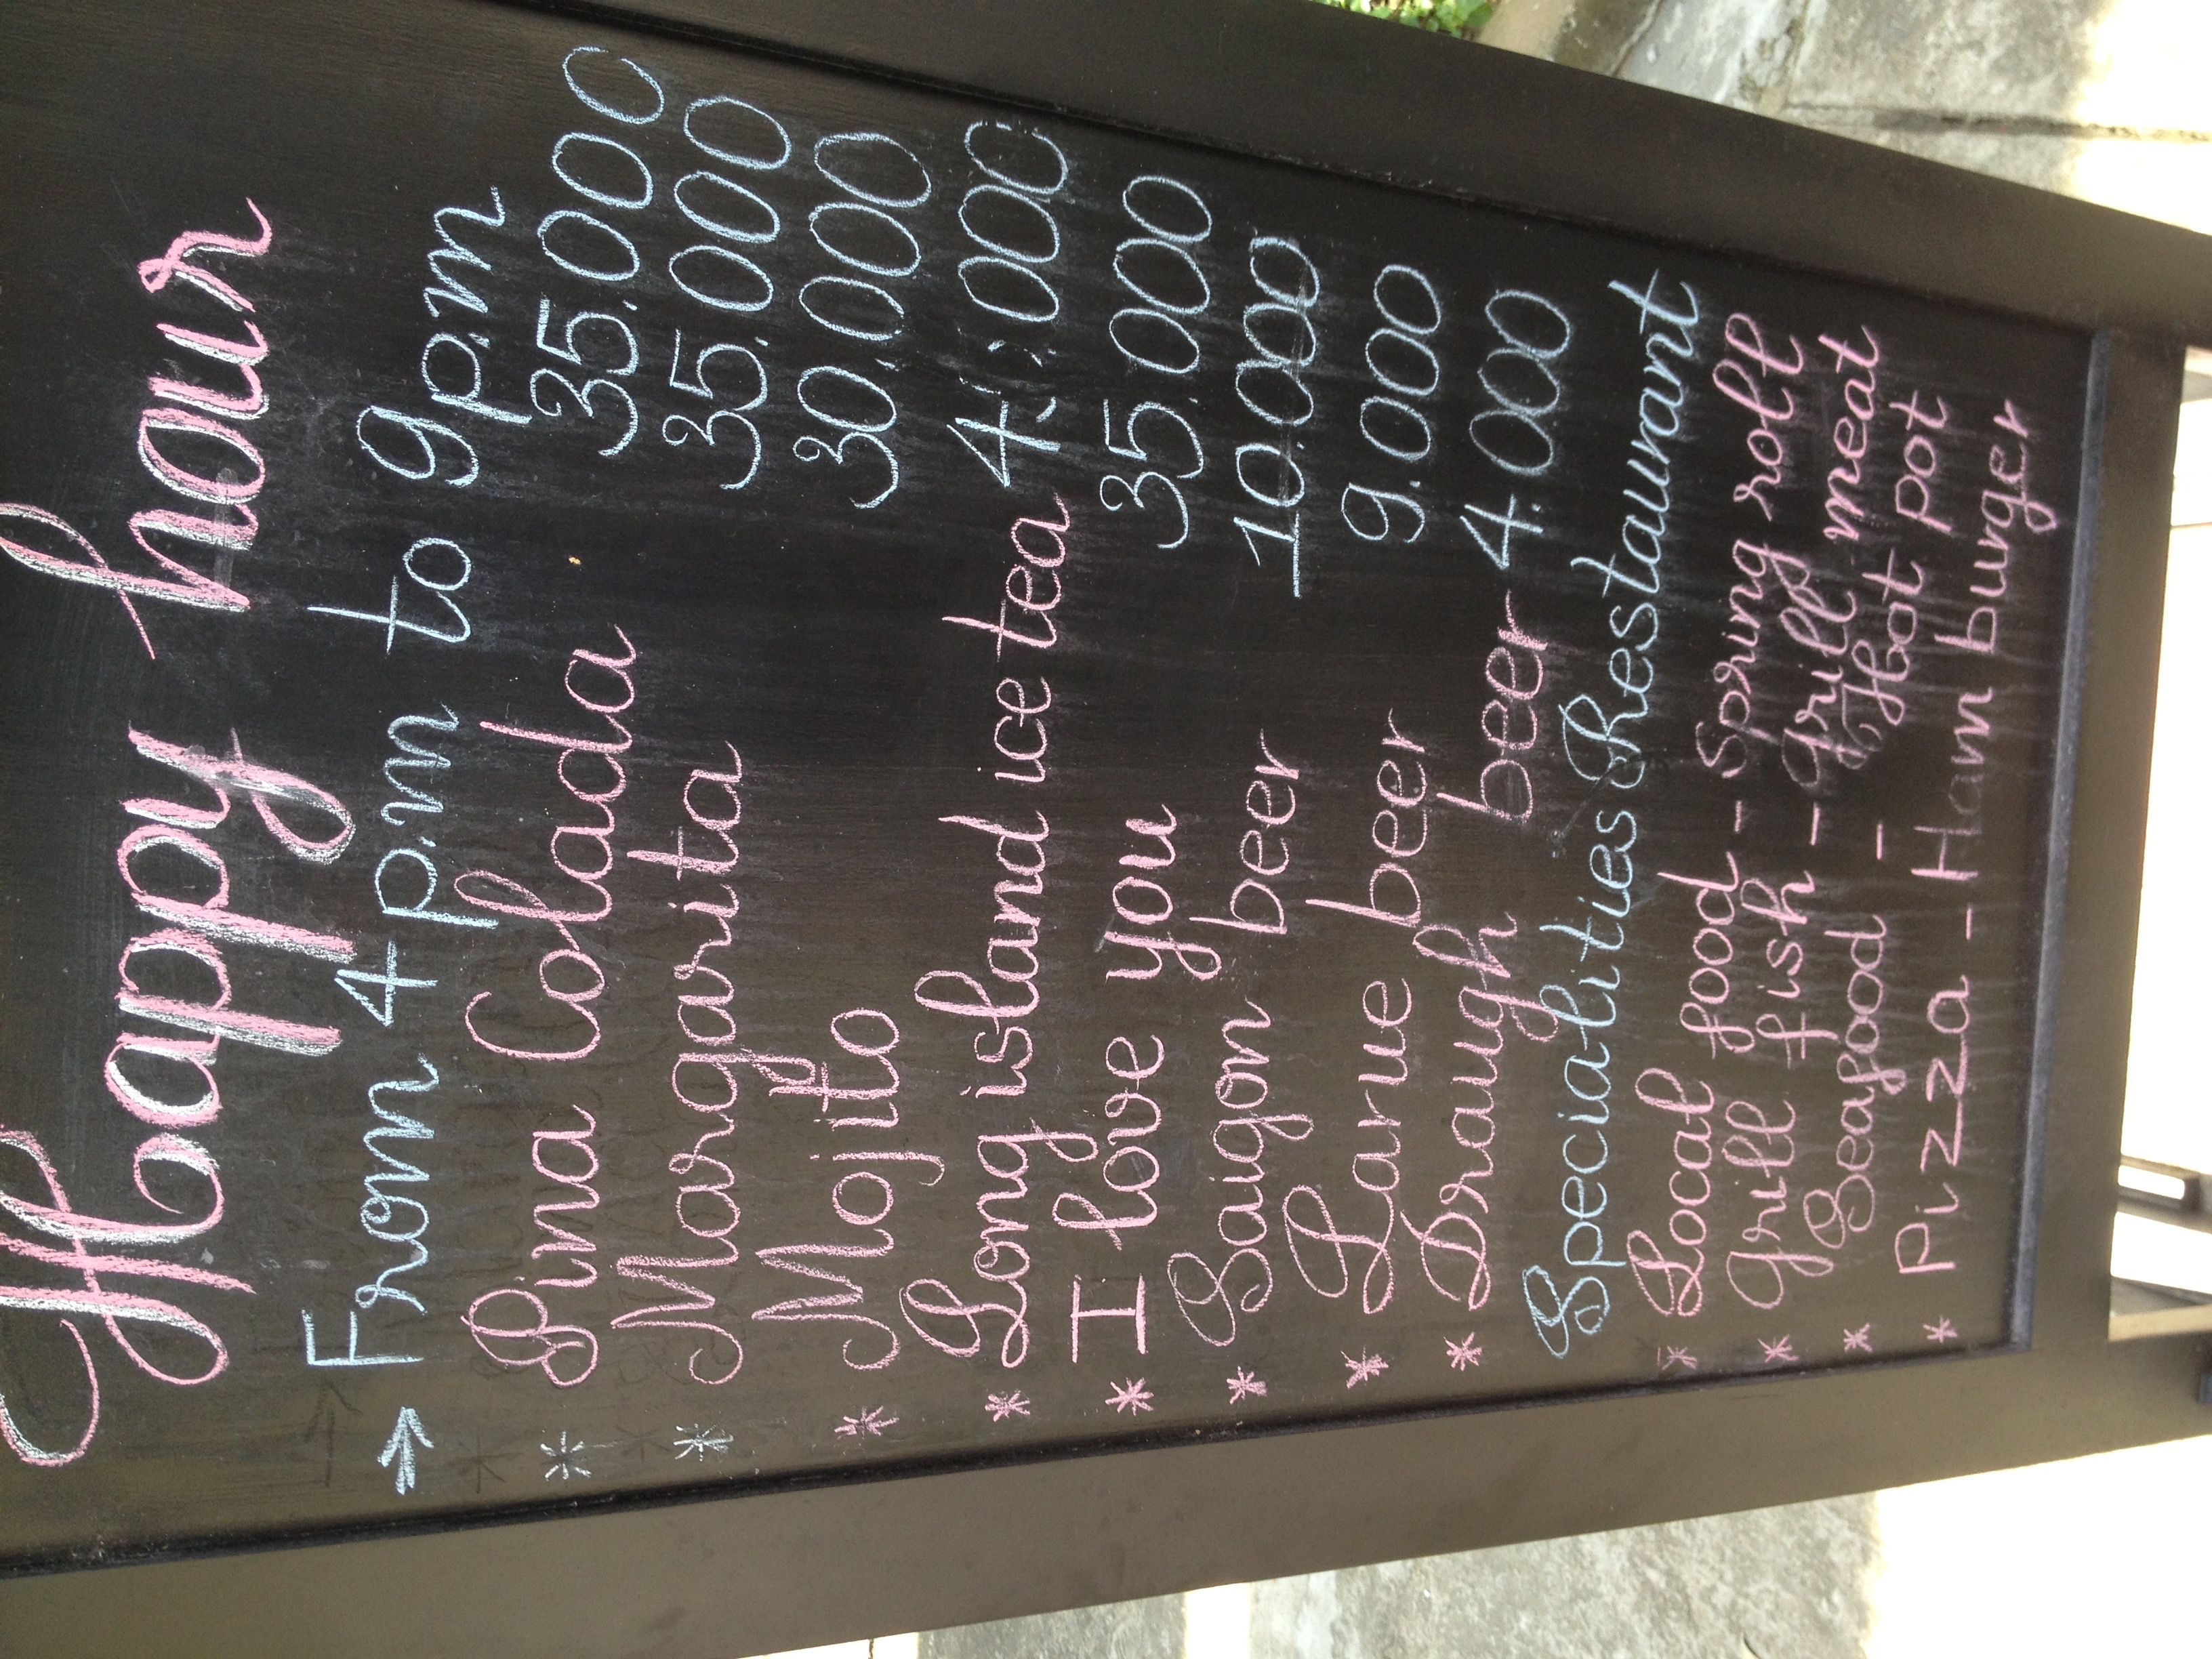 Happy hour
→ From 4 p.m to 9 p.m
* Pina Colada 35.000
* Margarita 35.000
* Mojito 30.000
* Long island ice tea
* I love you 35.000
* Saigon beer 10.000
* Larue beer 9.000
* Draugh beer 4.000
Specialities Restaurant
* Local food - Spring roll
* Grill fish - grill meat
* Seafood - Hot pot
* Pizza - Ham burger